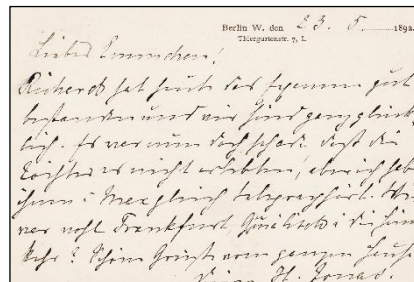 Berlin W. den 23. 5. 1892
Thiergartenstr. 7, I.
Liebes Emmchen!
Richard hat heute das Examen gut
bestanden und wir sind ganz glück-
lich. Es war nun doch schade daß die
Töchter es nicht erlebten, aber ich habe
ihnen gleich telegraphirt. Wie
war wohl Frankfurt, die
? Schöne Grüße vom ganzen Hause
H. Jonas.